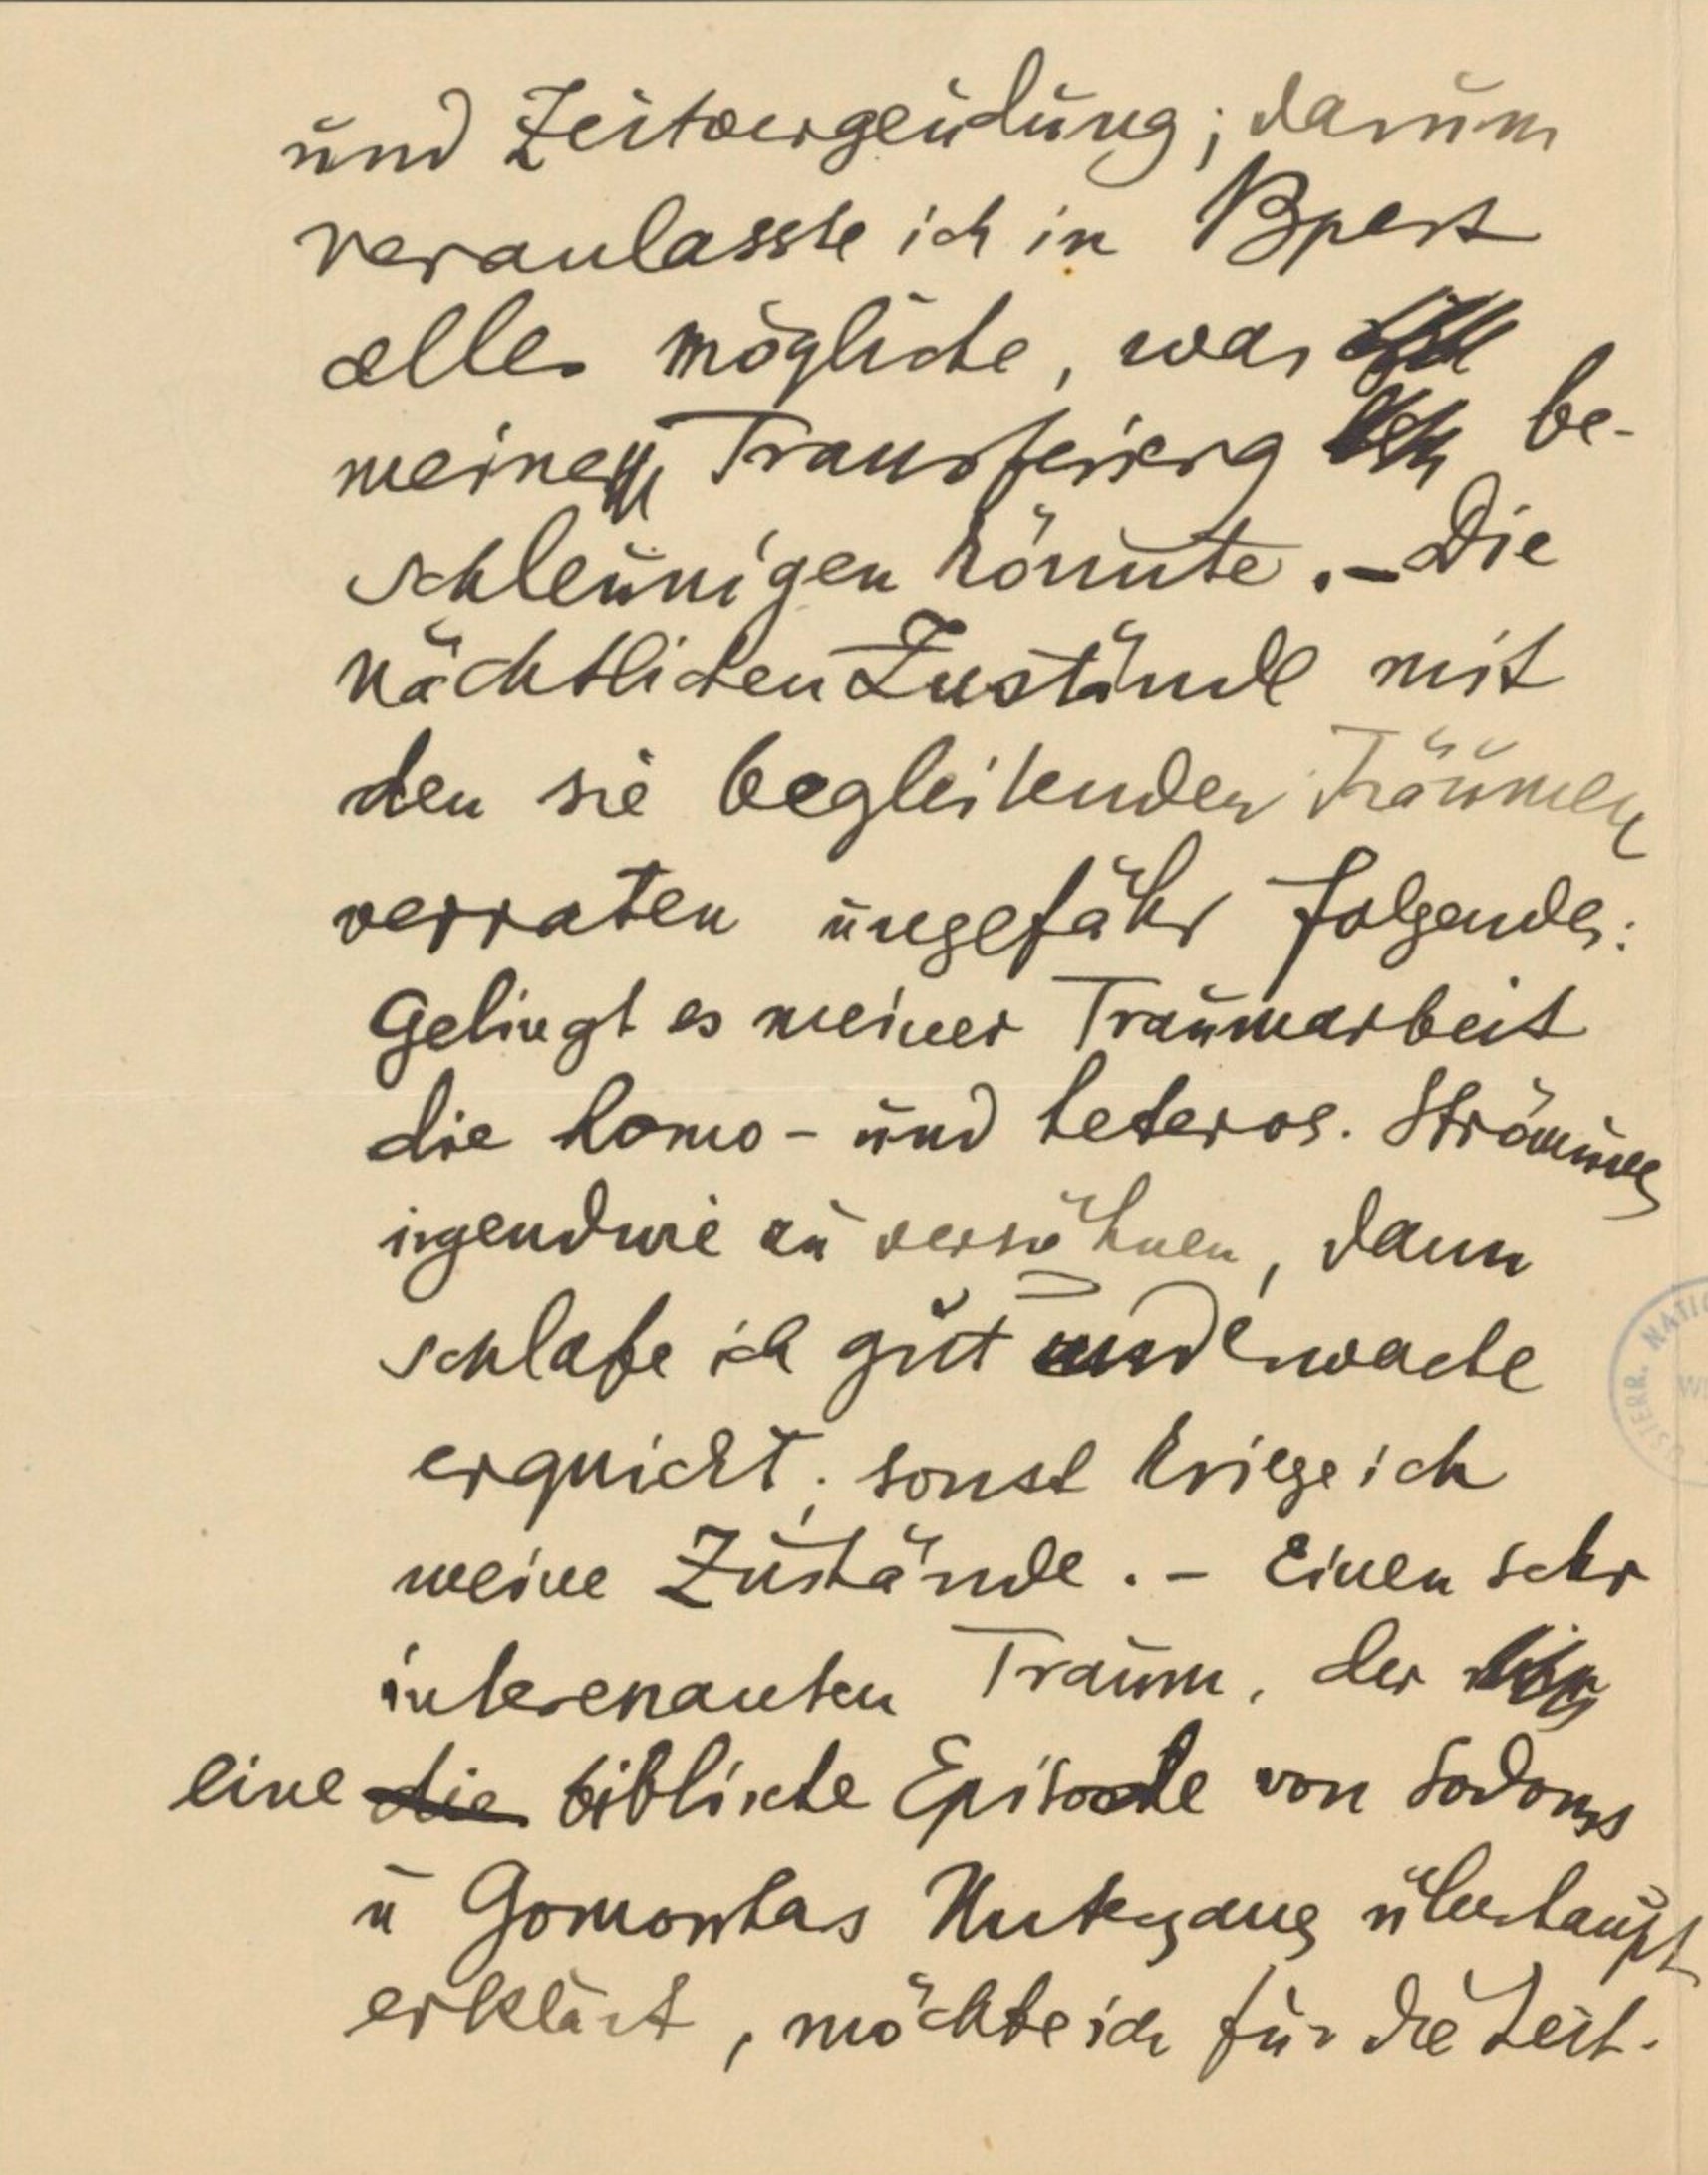 und Zeitvergeudung; darum
veranlasste ich in Bpest
alles mögliche, was
meine Transferierg be-
schleunigen könnte. – Die
nächtlichen Zustände mit
den sie begleitenden Träumen
verraten ungefähr folgendes:
Gelingt es meiner Traumarbeit
die homo- und heteros. Strömung
irgendwie zu versöhnen, dann
schlafe ich gut und erwache
erquickt; sonst kriege ich
meine Zustände. – Einen sehr
interessanten Traum, der
eine die biblische Episode von Sodoms
u Gomorrhas Untergang überhaupt
erklärt, möchte ich für die Zeit.
ÖSTERR. NATIO